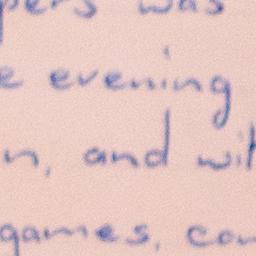 pers was
e evening
n, and wit
games, con